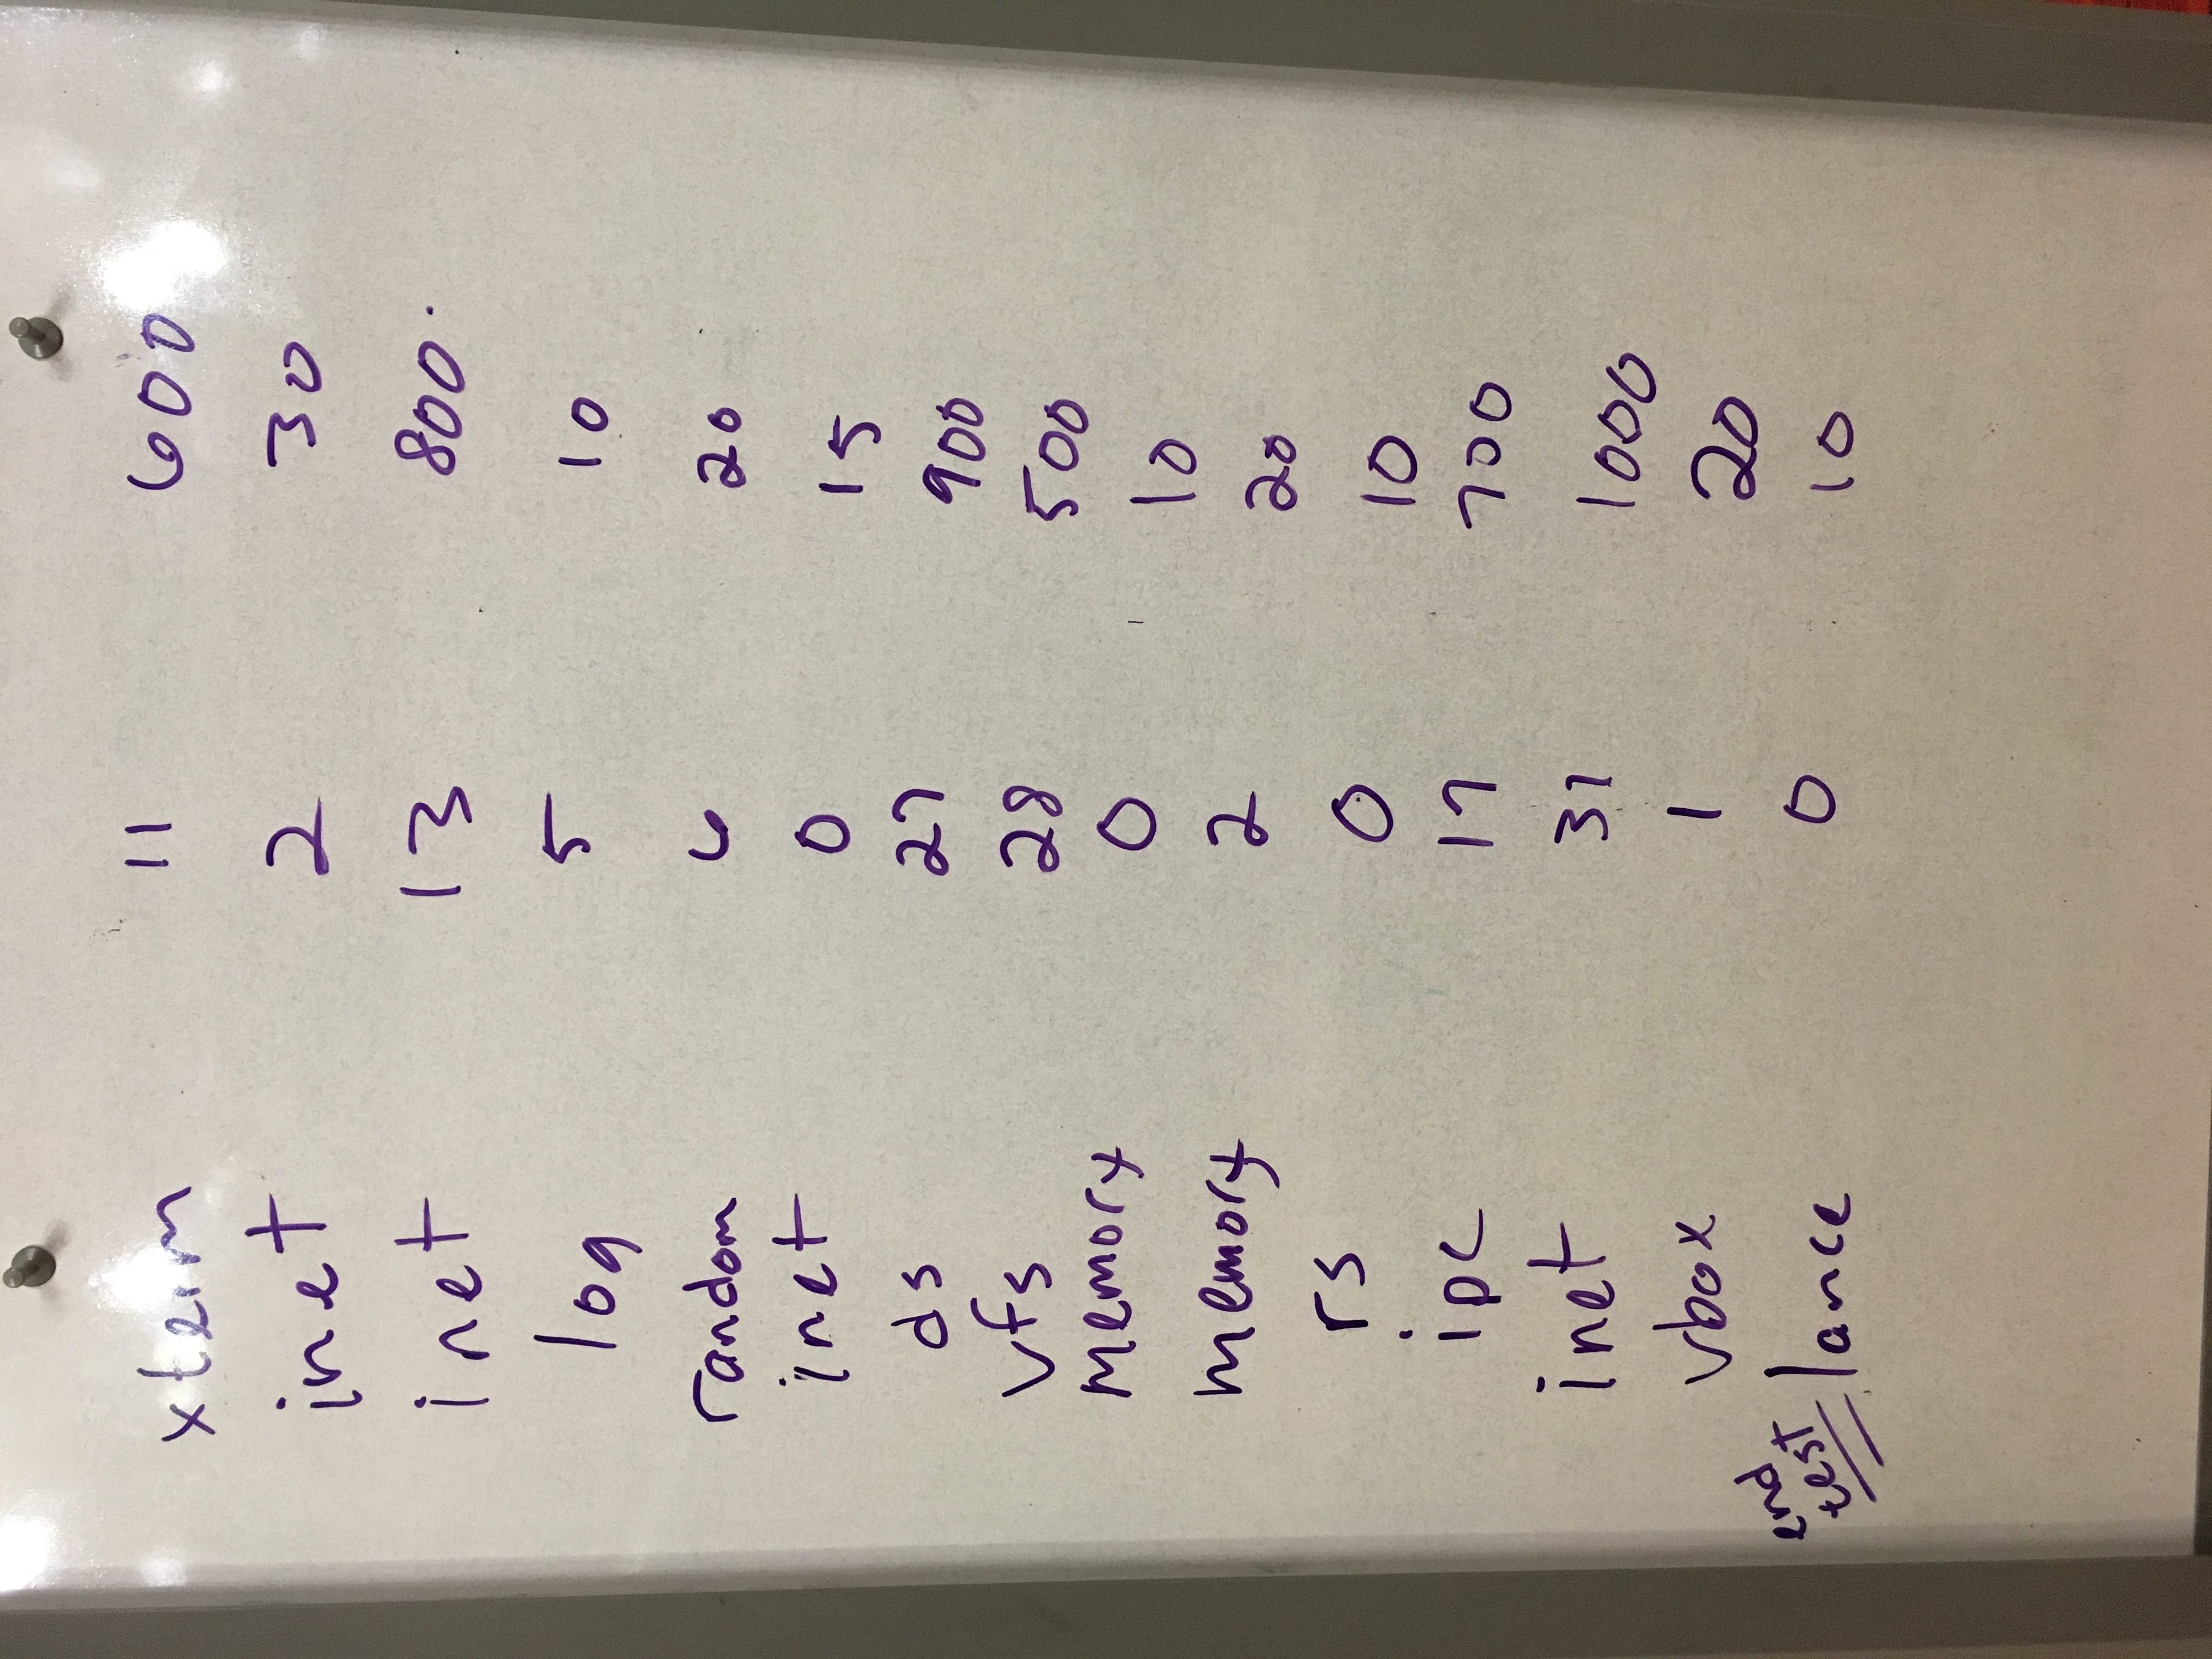 xterm 11 600
inet 2 30
inet 13 800
log 5 10
random 6 20
inet 0 15
ds 27 900
vfs 28 500
memory 0 10
memory 2 20
rs 0 10
ipc 17 700
inet 31 1000
vbox 1 20
end
test
lance 0 10